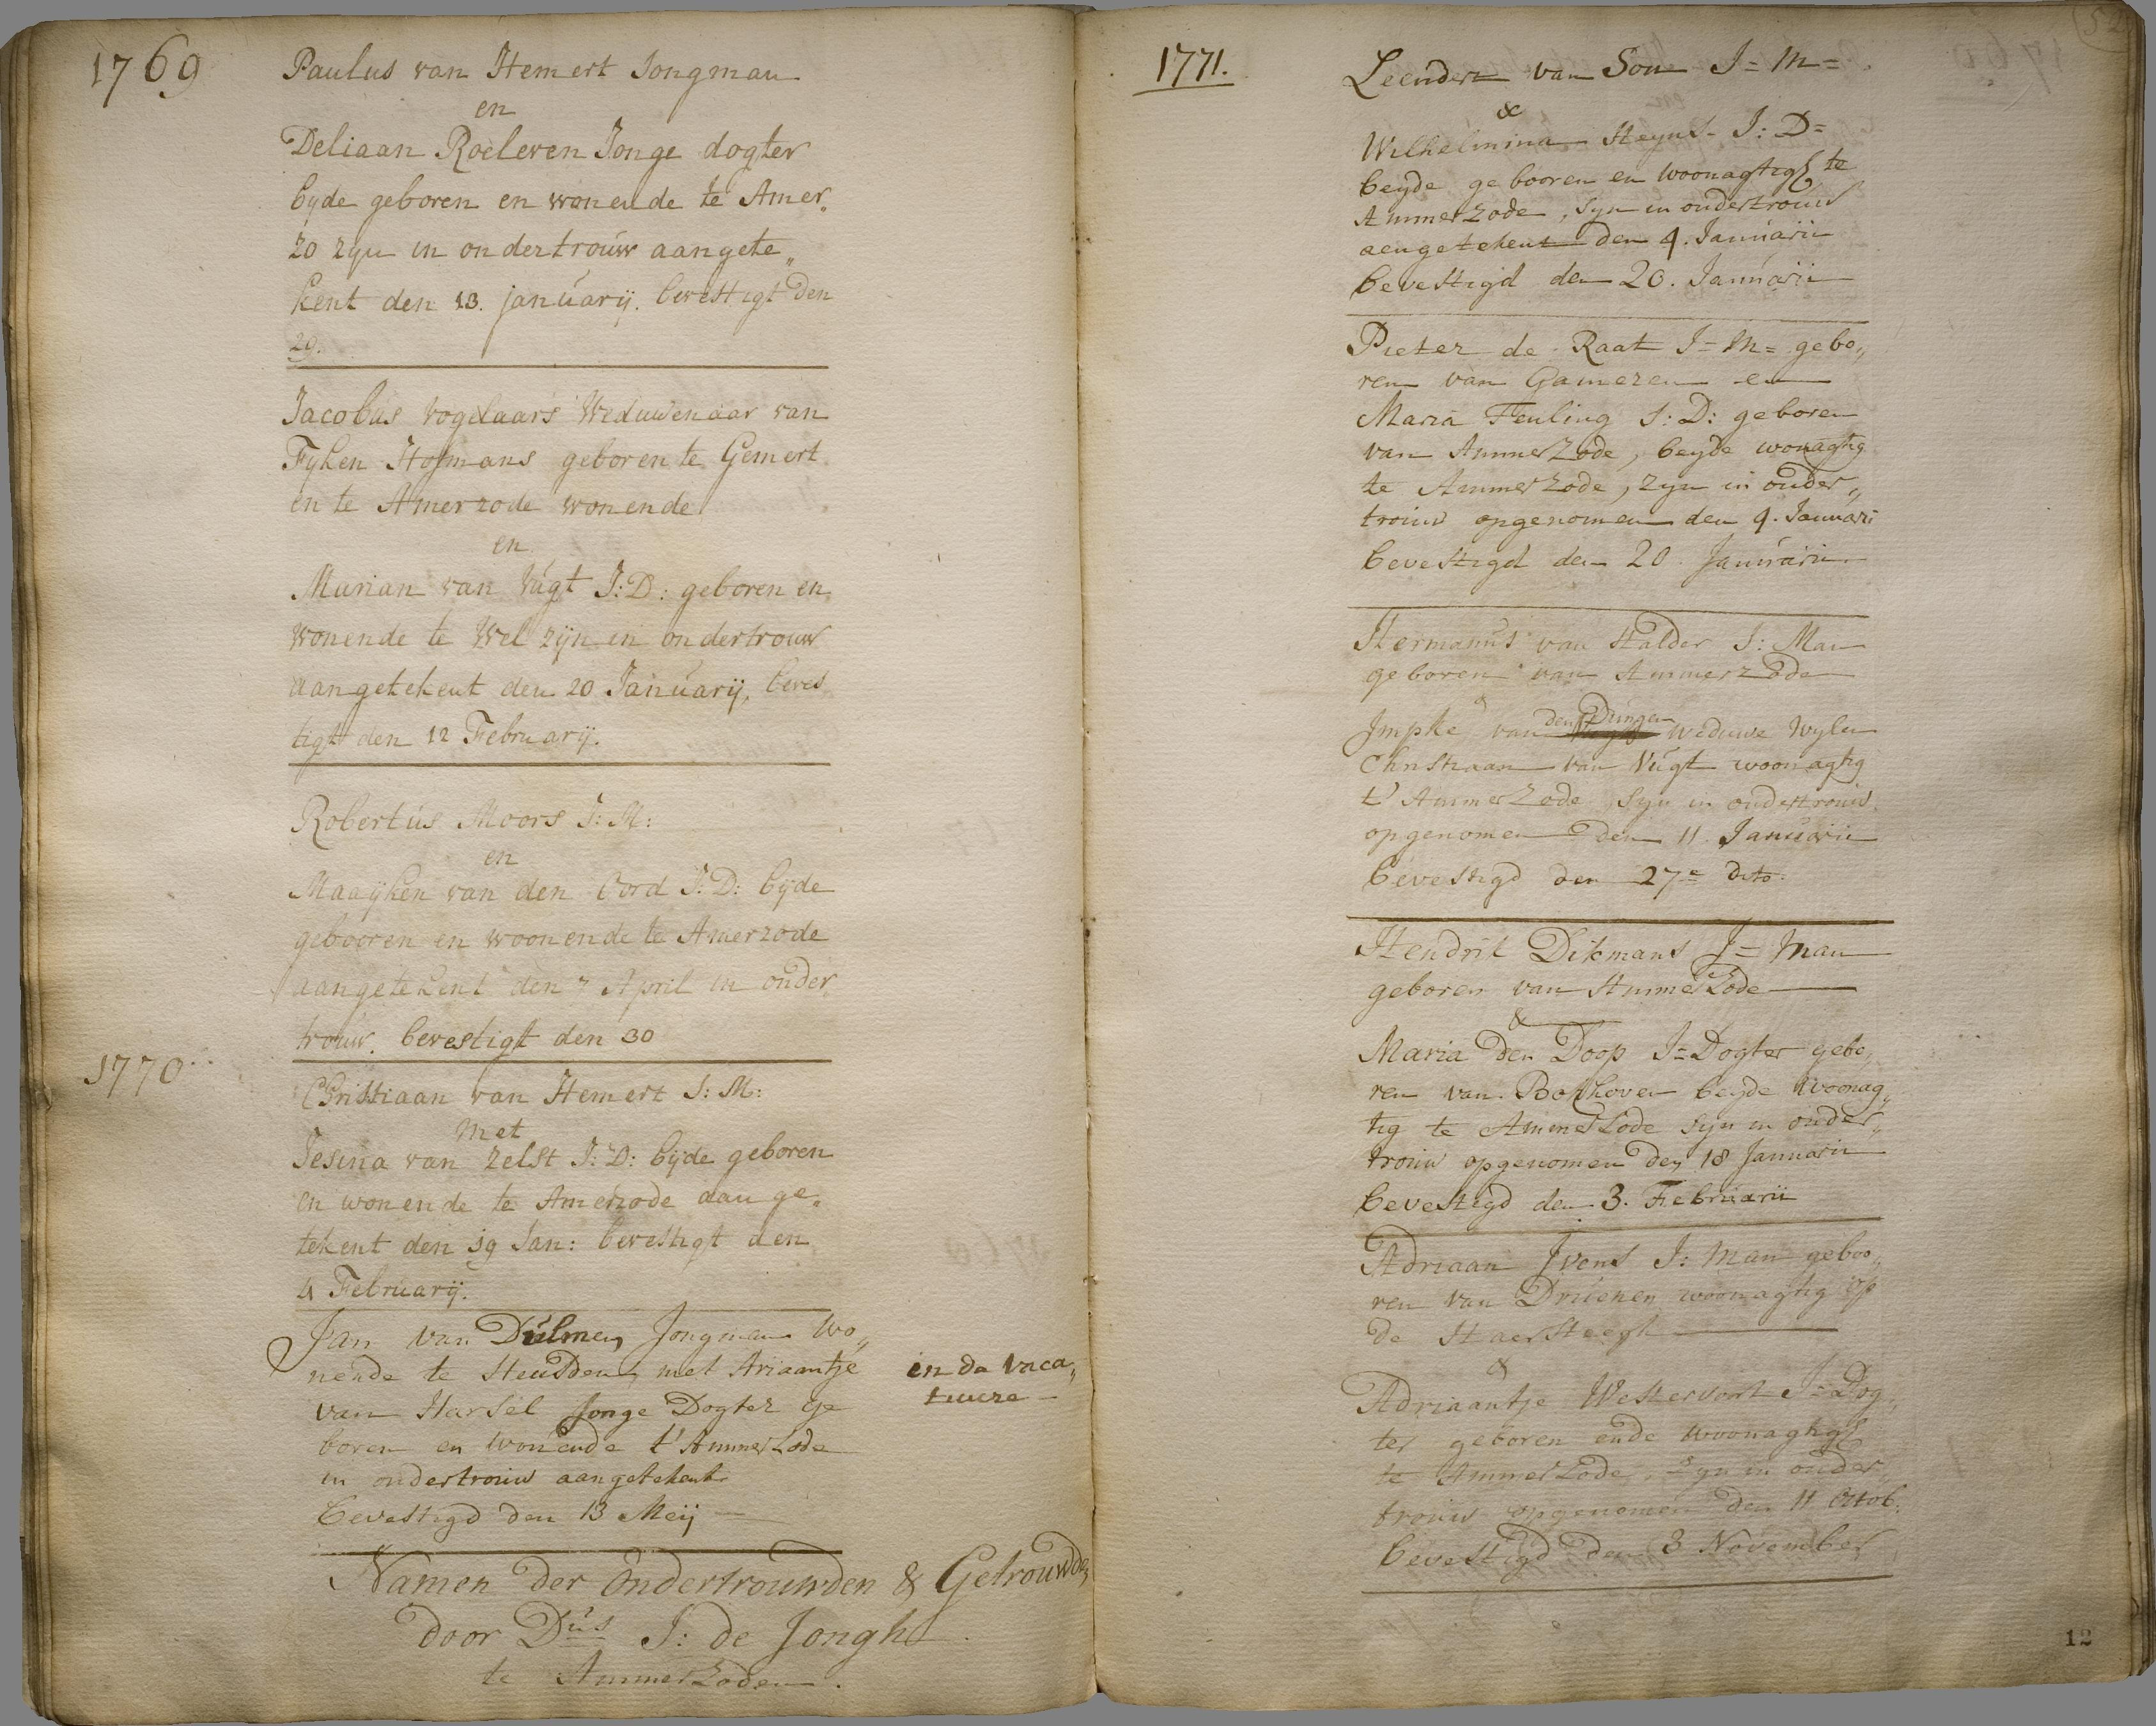 1769
Paulus van Hemert Jongman
en
Deliaan Roeleven Jonge dogter
byde geboren en wonende te Amer„
zo zyn in ondertrouw aangete„
kent den 13. january. bevestigt den
29.
Jacobus Vogelaars Weduwenaar van
Fyken Hofmans geboren te Gemert
en te Amerzode wonende
en
Murian van Vugt J:D: geboren en
wonende te Wel zijn in ondertrouw
aangetekent den 20 January, beves
tigt den 12 February.
Robertus Moors J:M:
en
Maayken van den Oord J:D: byde
gebooren en woonende te Amerzode
aangetekent den 7 April in onder
trouw. bevestigt den 30
1770
Christiaan van Hemert J:M:
Met
Jesina van Zelst J:D: byde geboren
en wonende te Amerzode aange„
tekent den 19 Jan: bevestigt den
4 February.
Jan van Dulmen Jongman Wo„
nende te Heusden, met Ariaantje
van Harsel Jonge Dogter ge
boren en wonende t'Ammerzode
in ondertrouw aangetekent
bevestigd den 13 Meij
in de vaca„
tuure
Namen der Ondertrouwden & Getrouwden
door Dus J: de Jongh
te Ammerzoden.
52
1771.
Leendert van Son J=M=
&
Wilhelmina Heyns J:D=
beyde gebooren en woonagtigh te
Ammerzode, Syn in ondertrouw
aengetekent den 4. Januarii
bevestigd den 20. Januarii
Pieter de Raat J=M= gebo„
ren van Gameren en
Maria Feuling J:D: geboren
van Ammerzode, beyde wonagtig
te Ammerzode, zyn in onder„
trouw opgenomen den 4. Januari
bevestigd den 20 Januarii
Hermanus van Halder J: Man
geboren van Ammerzode
&
den Dungen
Impke van weduwe Wylen
Christiaan van Vugt woonagtig
t'Ammerzode Syn in ondertrouw
opgenomen den 11 Januarii
bevestigd den 27e dito
Hendrik Dikmans J=Man
geboren van Ammerzode
&
Maria den Doop J=Dogter gebo„
ren van Bokhoven beyde woonag„
tig te Ammerzode Syn in onder„
trouw opgenomen den 18 Januarii
bevestigd den 3. Februarii
Adriaan Ivens J: Man geboo„
ren van Druenen woonagtig op
de Haersteegh
&
Adriaantje Westervoort J=Dog„
ter geboren ende woonagtigh
te Ammerzode, zyn in onder„
trouw opgenomen den 11 Octob.
bevestigd den 3 November
12